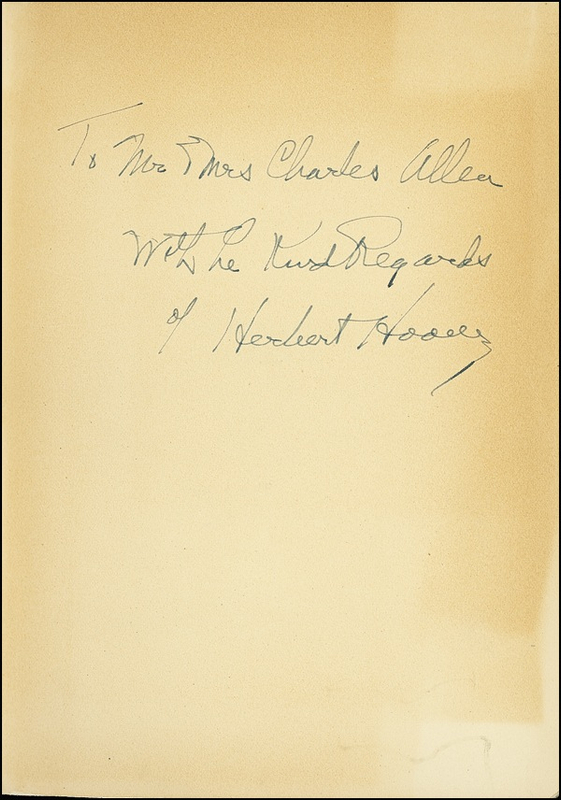 To Mr & Mrs Charles Allen
With the Kind Regards
of Herbert Hoover